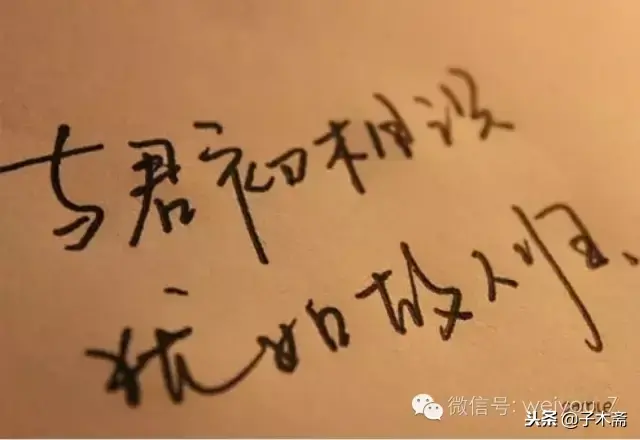 与君初相识
犹如故人归、
微信号: weiyone_7
头条 @子木斋